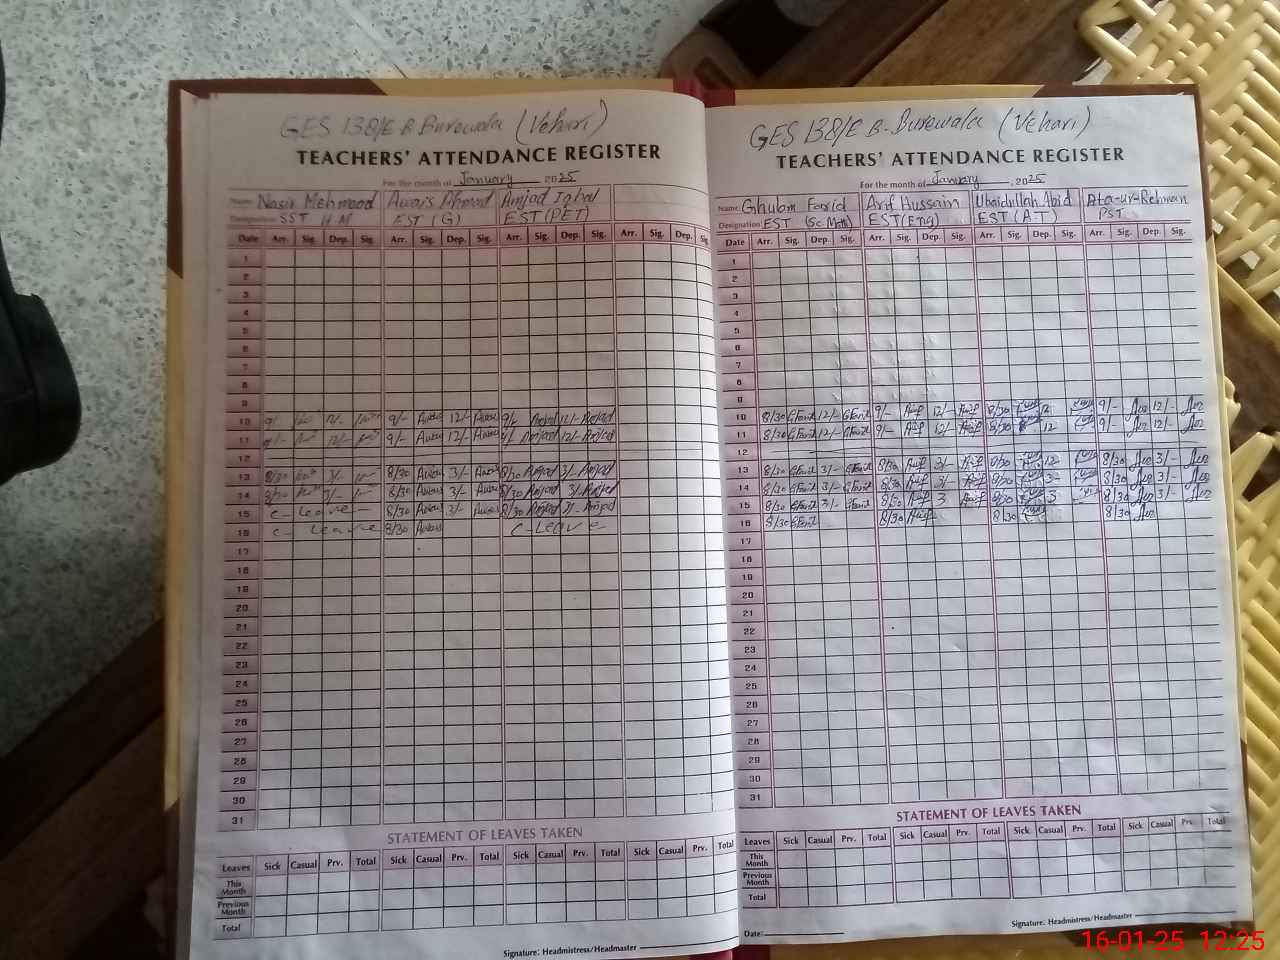 GES 138/E B Burewala (Vehari)
TEACHERS' ATTENDANCE REGISTER
For the month of January 2025
Name: Nasir Mehmood Awais Ahmad Amjad Iqbal
Designation: SST H.M EST (G) EST (PET)
Date Arr. Sig. Dep. Sig. Arr. Sig. Dep. Sig. Arr. Sig. Dep. Sig. Arr. Sig. Dep. Sig.
1
2
3
4
5
6
7
8
9
10 9/- 12/- 9/- Awais 12/- Awais 9/- Amjad 12/- Amjad
11 9/- 12/- 9/- Awais 12/- Awais 9/- Amjad 12/- Amjad
12
13 8/30 3/- 8/30 Awais 3/- Awais 8/30 Amjad 3/- Amjad
14 8/30 3/- 8/30 Awais 3/- Awais 8/30 Amjad 3/- Amjad
15 C-Leave 8/30 Awais 3/- Awais 8/30 Amjad 3/- Amjad
16 C-Leave 8/30 Awais C-Leave
17
18
19
20
21
22
23
24
25
26
27
28
29
30
31
STATEMENT OF LEAVES TAKEN
Leaves Sick Casual Prv. Total Sick Casual Prv. Total Sick Casual Prv. Total Sick Casual Prv. Total
This Month
Previous Month
Total
Signature: Headmistress/Headmaster
GES 138/E B. Burewala (Vehari)
TEACHERS' ATTENDANCE REGISTER
For the month of January, 2025
Name: Ghulam Farid Arif Hussain Ubaidullah Abid Ata-ur-Rehman
Designation: EST (Sc. Math) EST (Eng) EST (A.T) PST
Date Arr. Sig. Dep. Sig. Arr. Sig. Dep. Sig. Arr. Sig. Dep. Sig. Arr. Sig. Dep. Sig.
1
2
3
4
5
6
7
8
9
10 8/30 GFarid 12/- GFarid 9/- Arif 12/- Arif 8/30 12 9/- 12/-
11 8/30 GFarid 12/- GFarid 9/- Arif 12/- Arif 8/30 12 9/- 12/-
12
13 8/30 GFarid 3/- GFarid 8/30 Arif 3/- Arif 8/30 12 8/30 3/-
14 8/30 GFarid 3/- GFarid 8/30 Arif 3/- Arif 8/30 3 8/30 3/-
15 8/30 GFarid 3/- GFarid 8/30 Arif 3 Arif 8/30 3 8/30 3/-
16 8/30 GFarid 8/30 Arif 8/30 8/30
17
18
19
20
21
22
23
24
25
26
27
28
29
30
31
STATEMENT OF LEAVES TAKEN
Leaves Sick Casual Prv. Total Sick Casual Prv. Total Sick Casual Prv. Total Sick Casual Prv. Total
This Month
Previous Month
Total
Signature: Headmistress/Headmaster
Date:
16-01-25 12:25